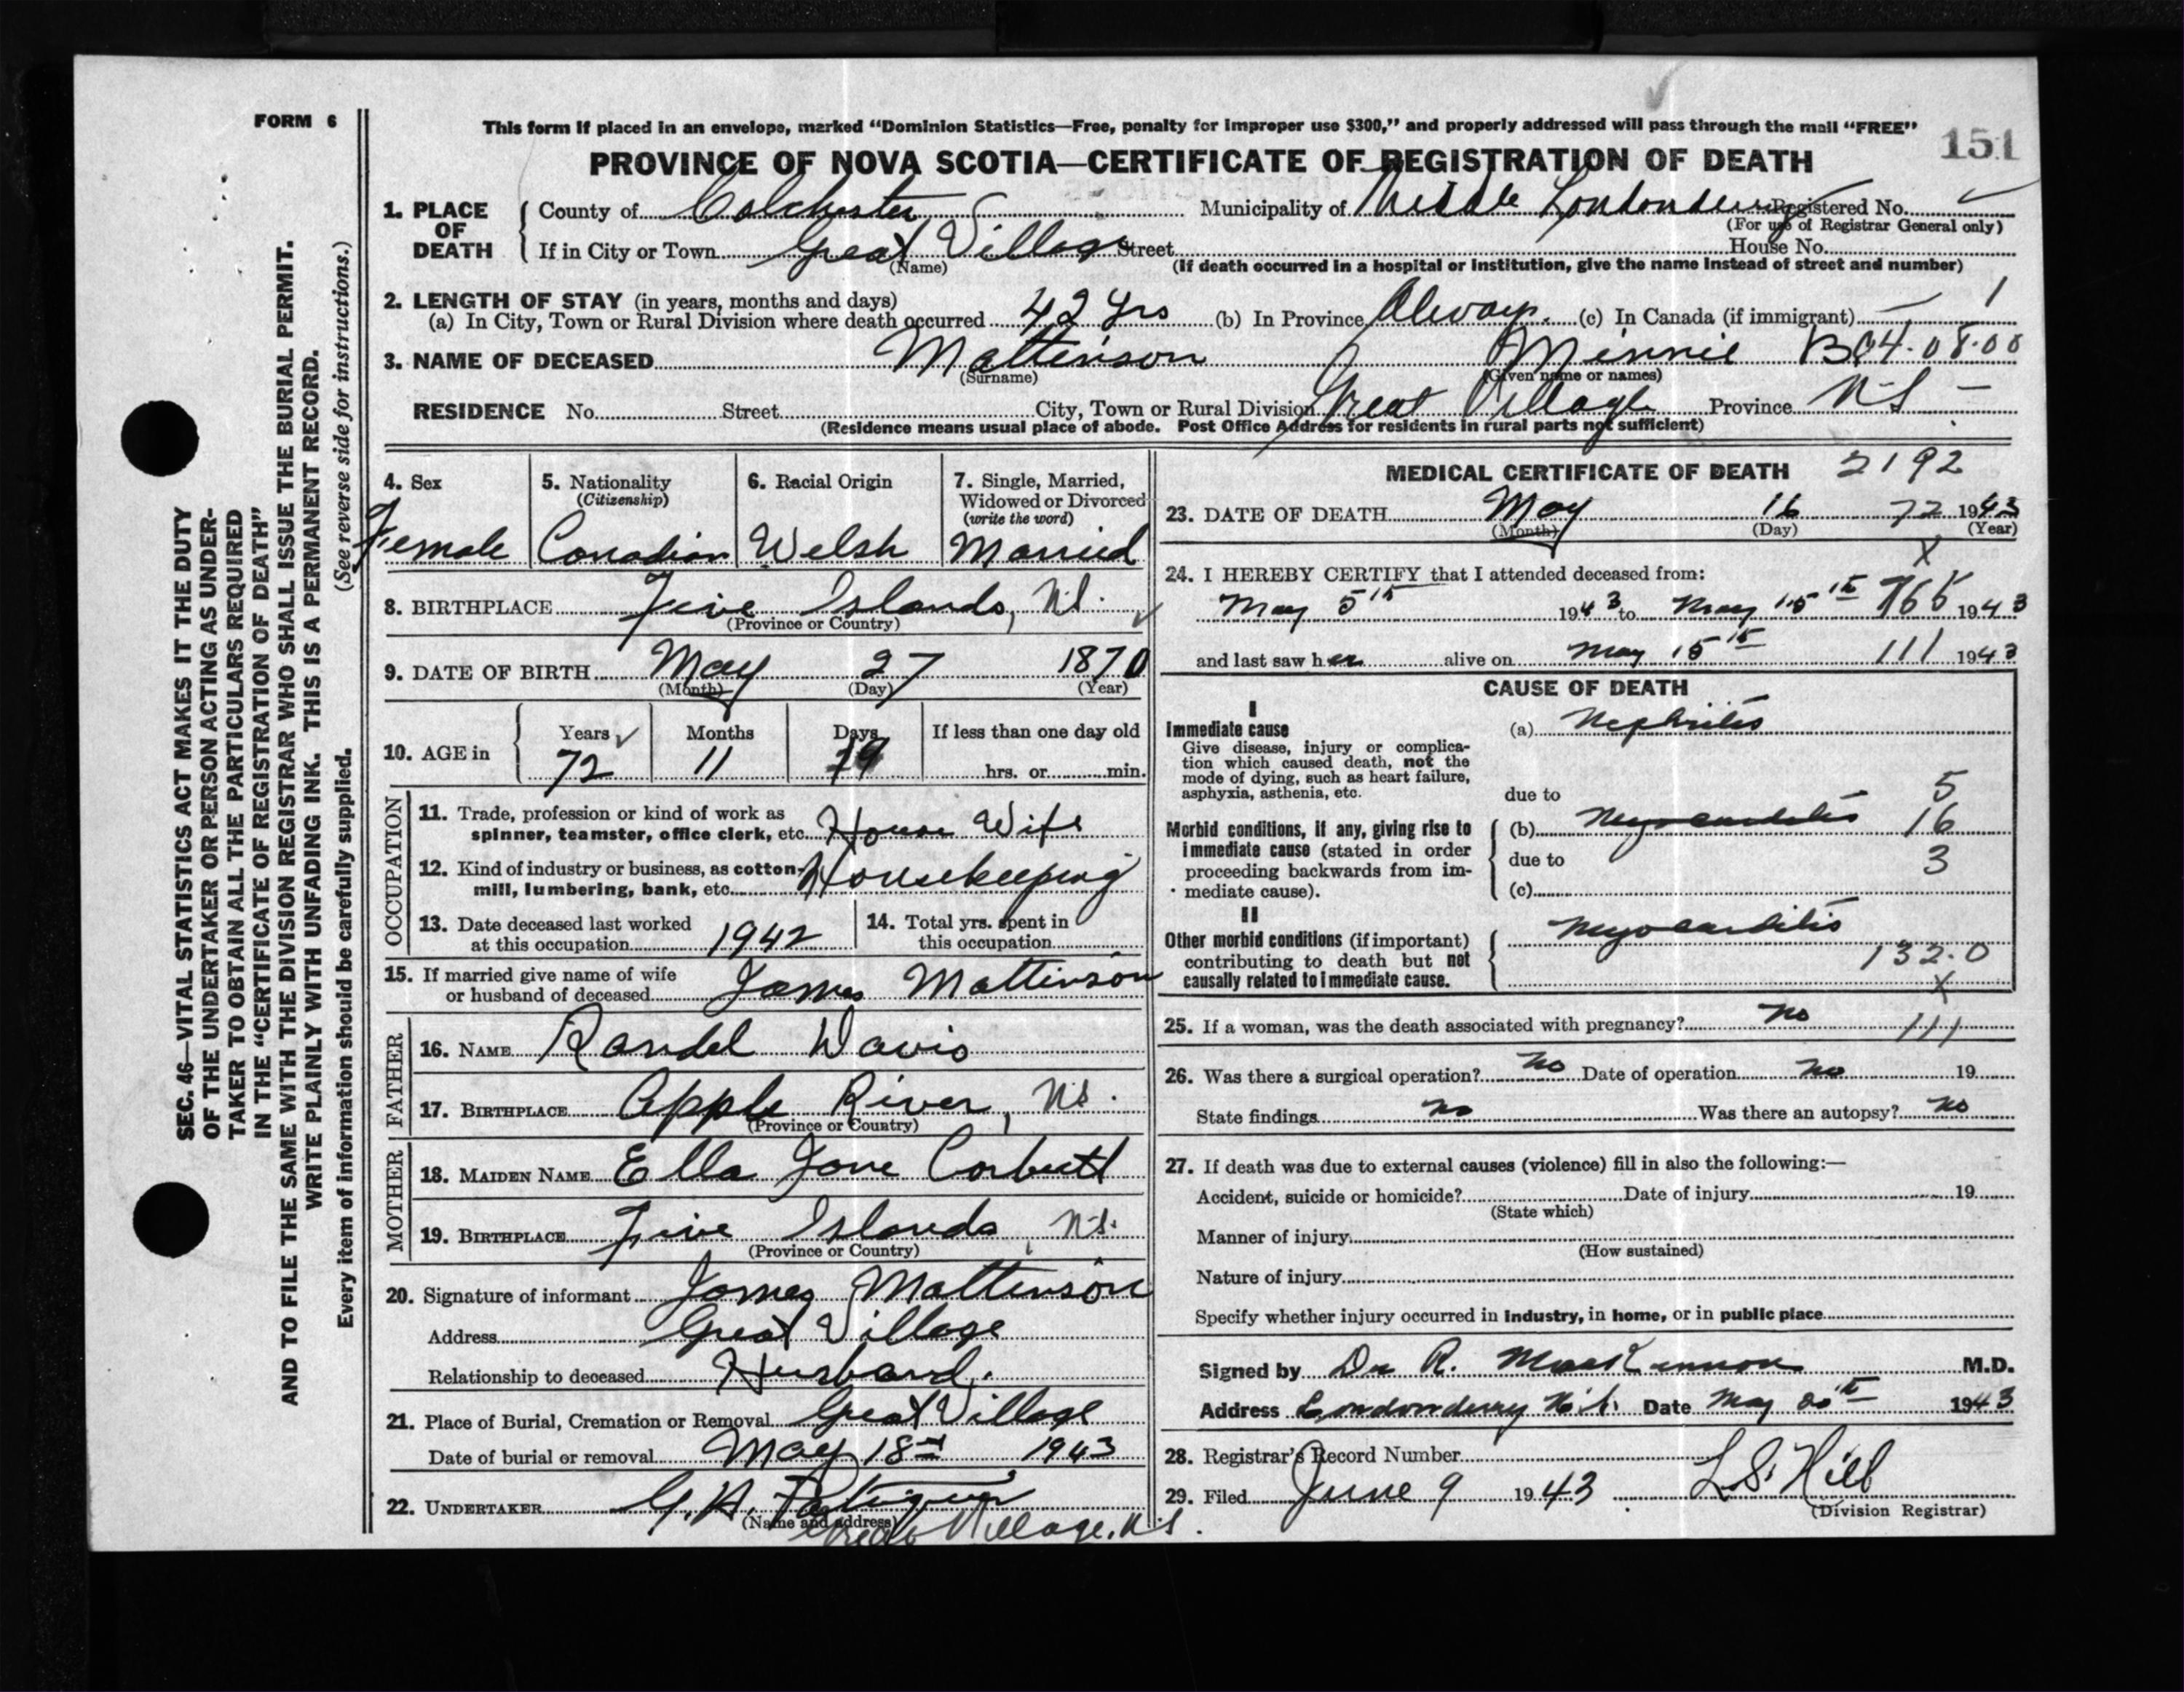 FORM 6
This form if placed in an envelope, marked "Dominion Statistics—Free, penalty for improper use $300," and properly addressed will pass through the mail "FREE"
151
PROVINCE OF NOVA SCOTIA—CERTIFICATE OF REGISTRATION OF DEATH
1. PLACE OF DEATH
County of Colchester Municipality of Middle Londonderry Registered No.
(For use of Registrar General only)
If in City or Town Great Village Street House No.
(Name) (If death occurred in a hospital or institution, give the name instead of street and number)
2. LENGTH OF STAY (in years, months and days)
(a) In City, Town or Rural Division where death occurred 42 yrs (b) In Province Always. (c) In Canada (if immigrant) — 1
3. NAME OF DECEASED Mattinson Minnie B04.08.00
(Surname) (Given name or names)
RESIDENCE No. Street City, Town or Rural Division Great Village Province N.S —
(Residence means usual place of abode. Post Office Address for residents in rural parts not sufficient)
4. Sex
Female
5. Nationality
(Citizenship)
Canadian
6. Racial Origin
Welsh
7. Single, Married,
Widowed or Divorced
(write the word)
Married
8. BIRTHPLACE Five Islands, N.S.
(Province or Country)
9. DATE OF BIRTH May 27 1870
(Month) (Day) (Year)
10. AGE in
Years Months Days If less than one day old
72 11 19 hrs. or min.
OCCUPATION
11. Trade, profession or kind of work as
spinner, teamster, office clerk, etc. House Wife
12. Kind of industry or business, as cotton-
mill, lumbering, bank, etc. Housekeeping
13. Date deceased last worked
at this occupation 1942
14. Total yrs. spent in
this occupation
15. If married give name of wife
or husband of deceased James Mattinson
FATHER
16. NAME Randel Davis
17. BIRTHPLACE Apple River, N.S.
(Province or Country)
MOTHER
18. MAIDEN NAME Ella Jane Corbett
19. BIRTHPLACE Five Islands, N.S.
(Province or Country)
20. Signature of informant James Mattinson
Address Great Village
Relationship to deceased Husband.
21. Place of Burial, Cremation or Removal Great Village
Date of burial or removal May 18th 1943
22. UNDERTAKER G. A.
(Name and address)
Great Village, N.S.
MEDICAL CERTIFICATE OF DEATH 2192
23. DATE OF DEATH May 16 72 1943
(Month) (Day) (Year)
X
24. I HEREBY CERTIFY that I attended deceased from:
May 5th 1943 to May 15th 1943
and last saw her alive on May 15th 111 1943
CAUSE OF DEATH
I
Immediate cause
Give disease, injury or complica-
tion which caused death, not the
mode of dying, such as heart failure,
asphyxia, asthenia, etc.
(a) Nephritis
due to 5
Morbid conditions, if any, giving rise to
immediate cause (stated in order
proceeding backwards from im-
mediate cause).
(b) Myocarditis 16
due to 3
(c)
II
Other morbid conditions (if important)
contributing to death but not
causally related to immediate cause.
Myocarditis
132.0
X
25. If a woman, was the death associated with pregnancy? No 111
26. Was there a surgical operation? No Date of operation No 19
State findings No Was there an autopsy? No
27. If death was due to external causes (violence) fill in also the following:—
Accident, suicide or homicide? Date of injury 19
(State which)
Manner of injury
(How sustained)
Nature of injury
Specify whether injury occurred in industry, in home, or in public place
Signed by Dr R. MacKinnon M.D.
Address Londonderry N.S. Date May 20th 1943
28. Registrar's Record Number
29. Filed June 9 1943 L.S. Hill
(Division Registrar)
SEC. 46—VITAL STATISTICS ACT MAKES IT THE DUTY
OF THE UNDERTAKER OR PERSON ACTING AS UNDER-
TAKER TO OBTAIN ALL THE PARTICULARS REQUIRED
IN THE "CERTIFICATE OF REGISTRATION OF DEATH"
AND TO FILE THE SAME WITH THE DIVISION REGISTRAR WHO SHALL ISSUE THE BURIAL PERMIT.
WRITE PLAINLY WITH UNFADING INK. THIS IS A PERMANENT RECORD.
Every item of information should be carefully supplied. (See reverse side for instructions.)